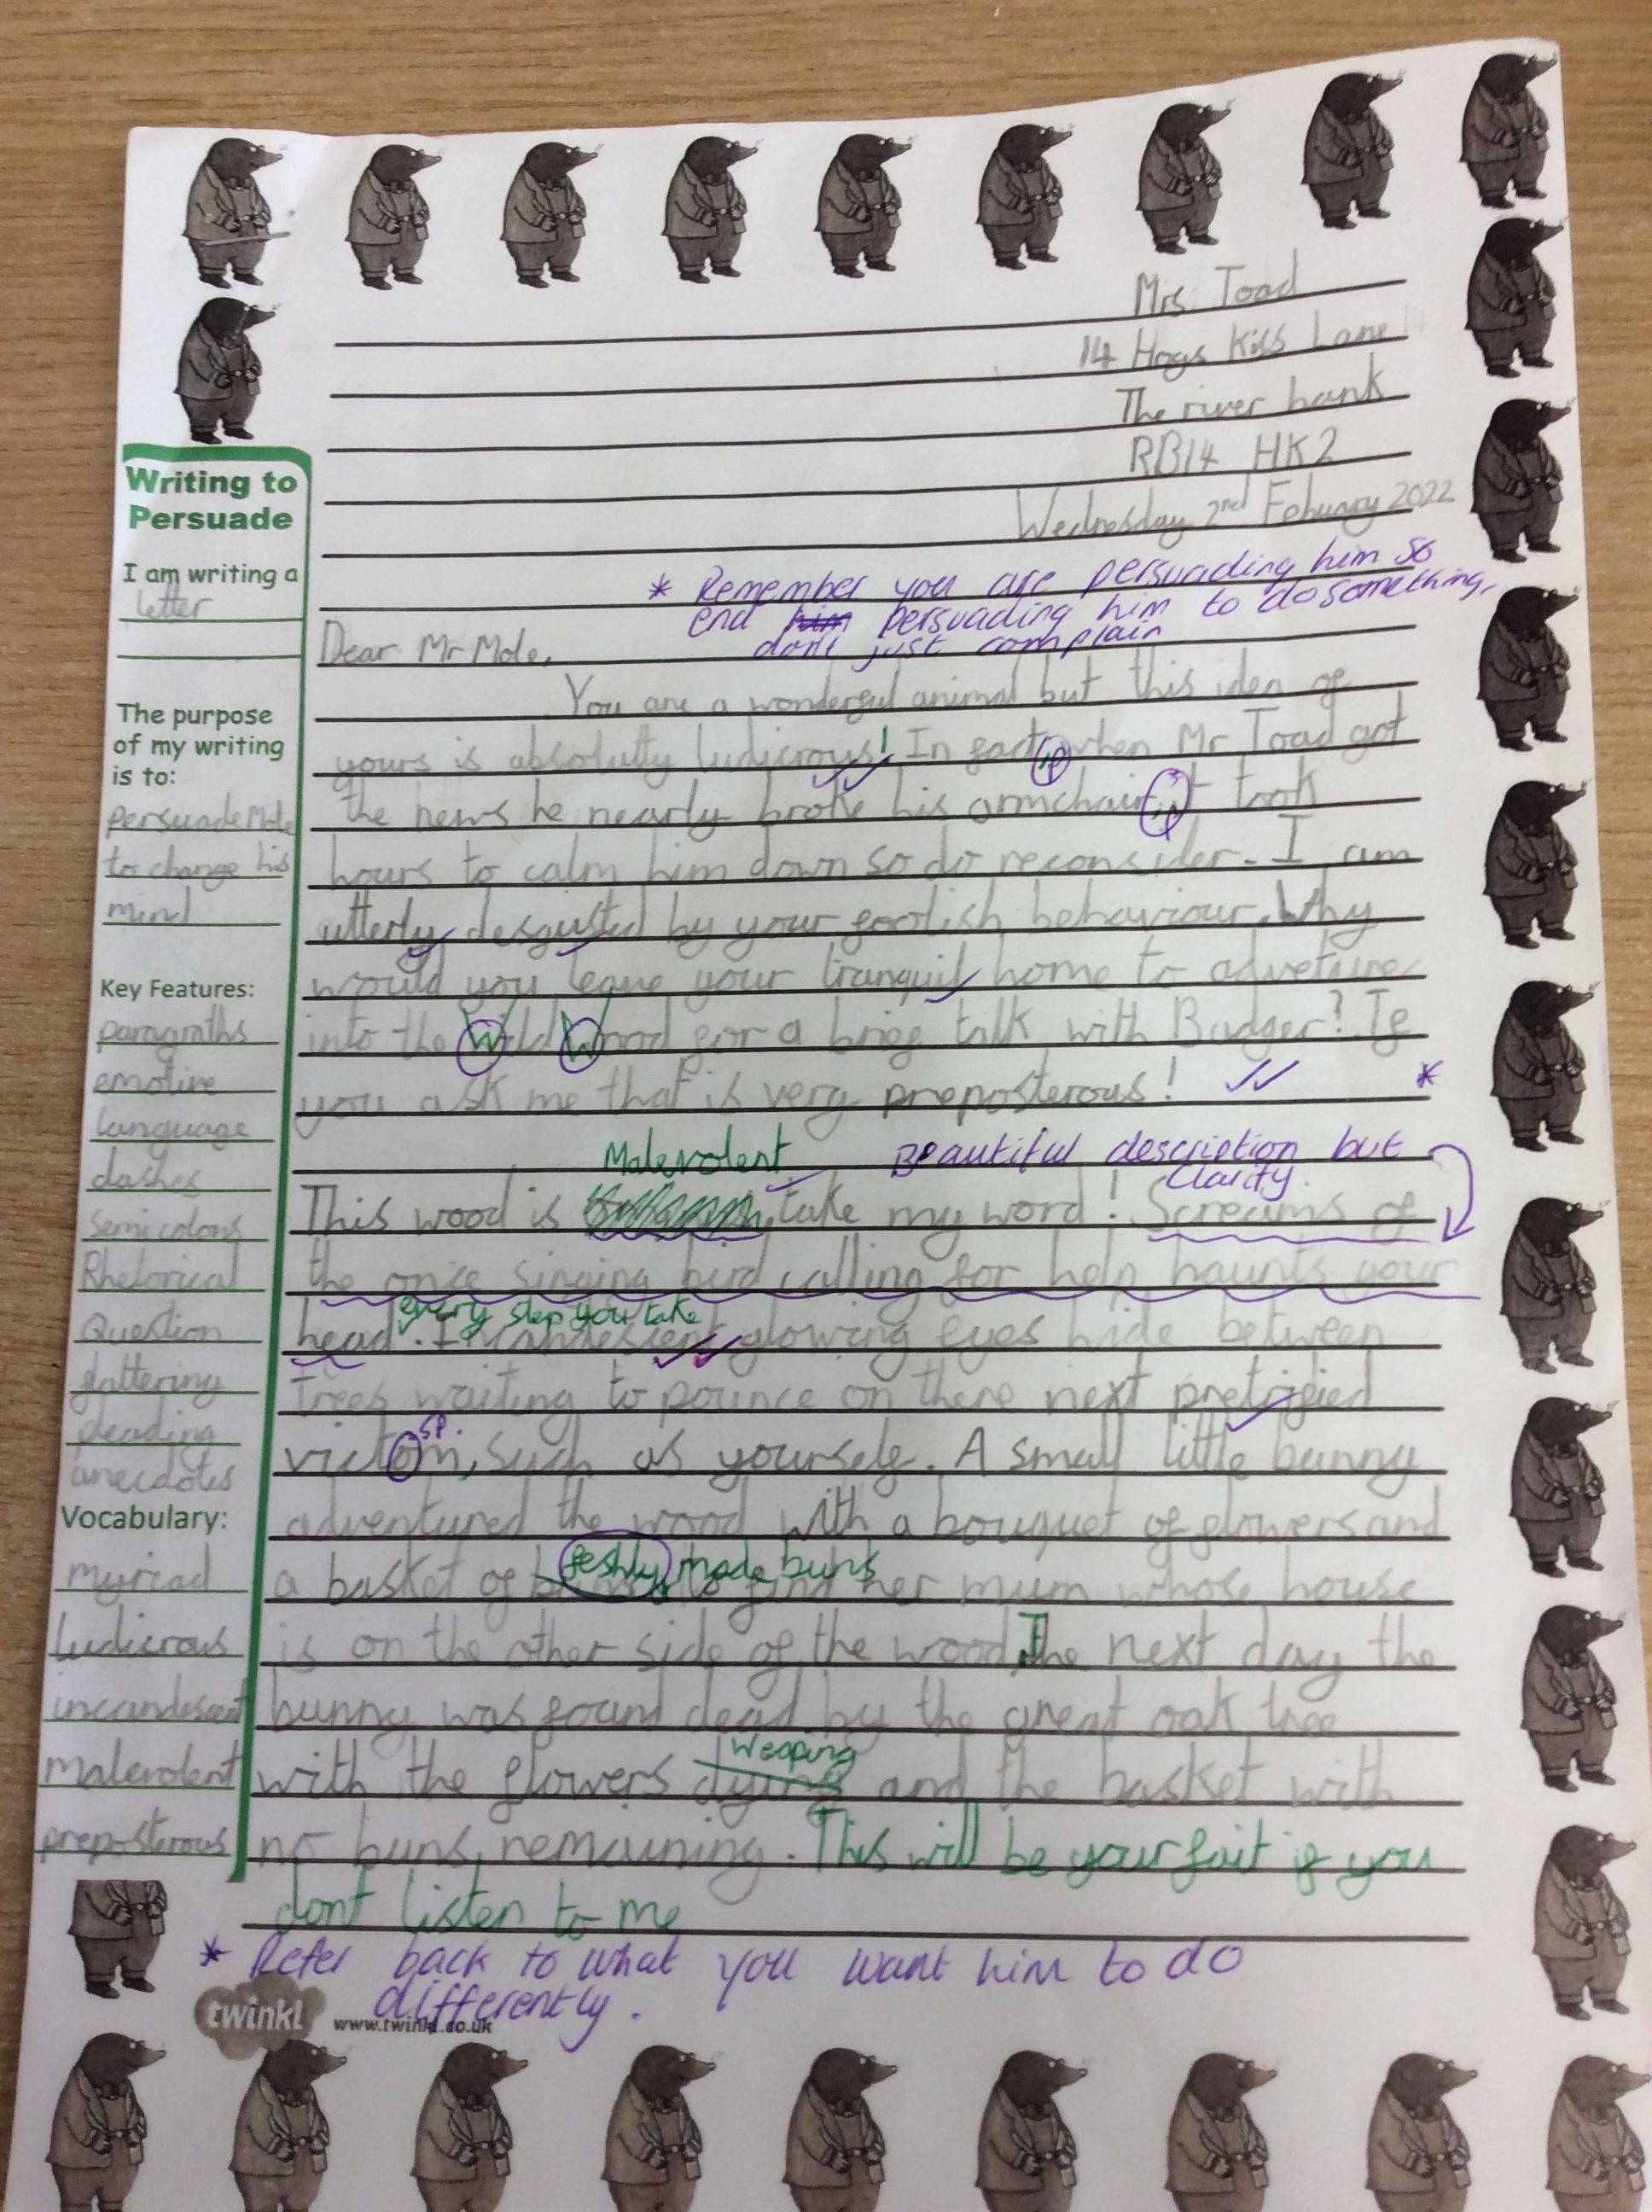 Mrs. Toad
14 Hogs Kiss Lane
The river bank
RB14 HK2
Wednesday 2nd Febuary 2022
Writing to
Persuade
I am writing a
letter
The purpose
of my writing
is to:
persuade Mole
to change his
mind
Key Features:
paragraths
emotive
language
dashes
semicolons
Rhetorical
Question
flattering
pleading
anecdotes
Vocabulary:
myriad
ludicrous
incandescent
malevolent
preposterous
* Remember you are persuading him so
end him persuading him to do something,
don't just complain
Dear Mr Mole,
You are a wonderful animal but this idea of
yours is absolutly ludicrous! In fact, when Mr Toad got
the news he nearly broke his armchair, it took
hours to calm him down so do reconsider. I am
utterly desgusted by your foolish behaviour. Why
would you leave your tranquil home to adveture
into the Wild Wood for a brief talk with Badger? If
you ask me that is very preposterous! *
Malevolent Beautiful description but
clarity.
This wood is take my word! Screams of
the once singing bird calling for help haunts your
every step you take
head. Incandescent glowing eyes hide between
trees waiting to pounce on there next pretrified
sp.
victom, such as yourself. A small little bunny
adventured the wood with a bouquet of flowers and
feshly made buns
a basket of buns to find her mum whose house
is on the other side of the wood. The next day the
bunny was found dead by the great oak tree
weeping
with the flowers dying and the basket with
no buns, remaining. This will be your fait if you
dont listen to me
* Refer back to what you want him to do
differently.
twinkl www.twinkl.co.uk